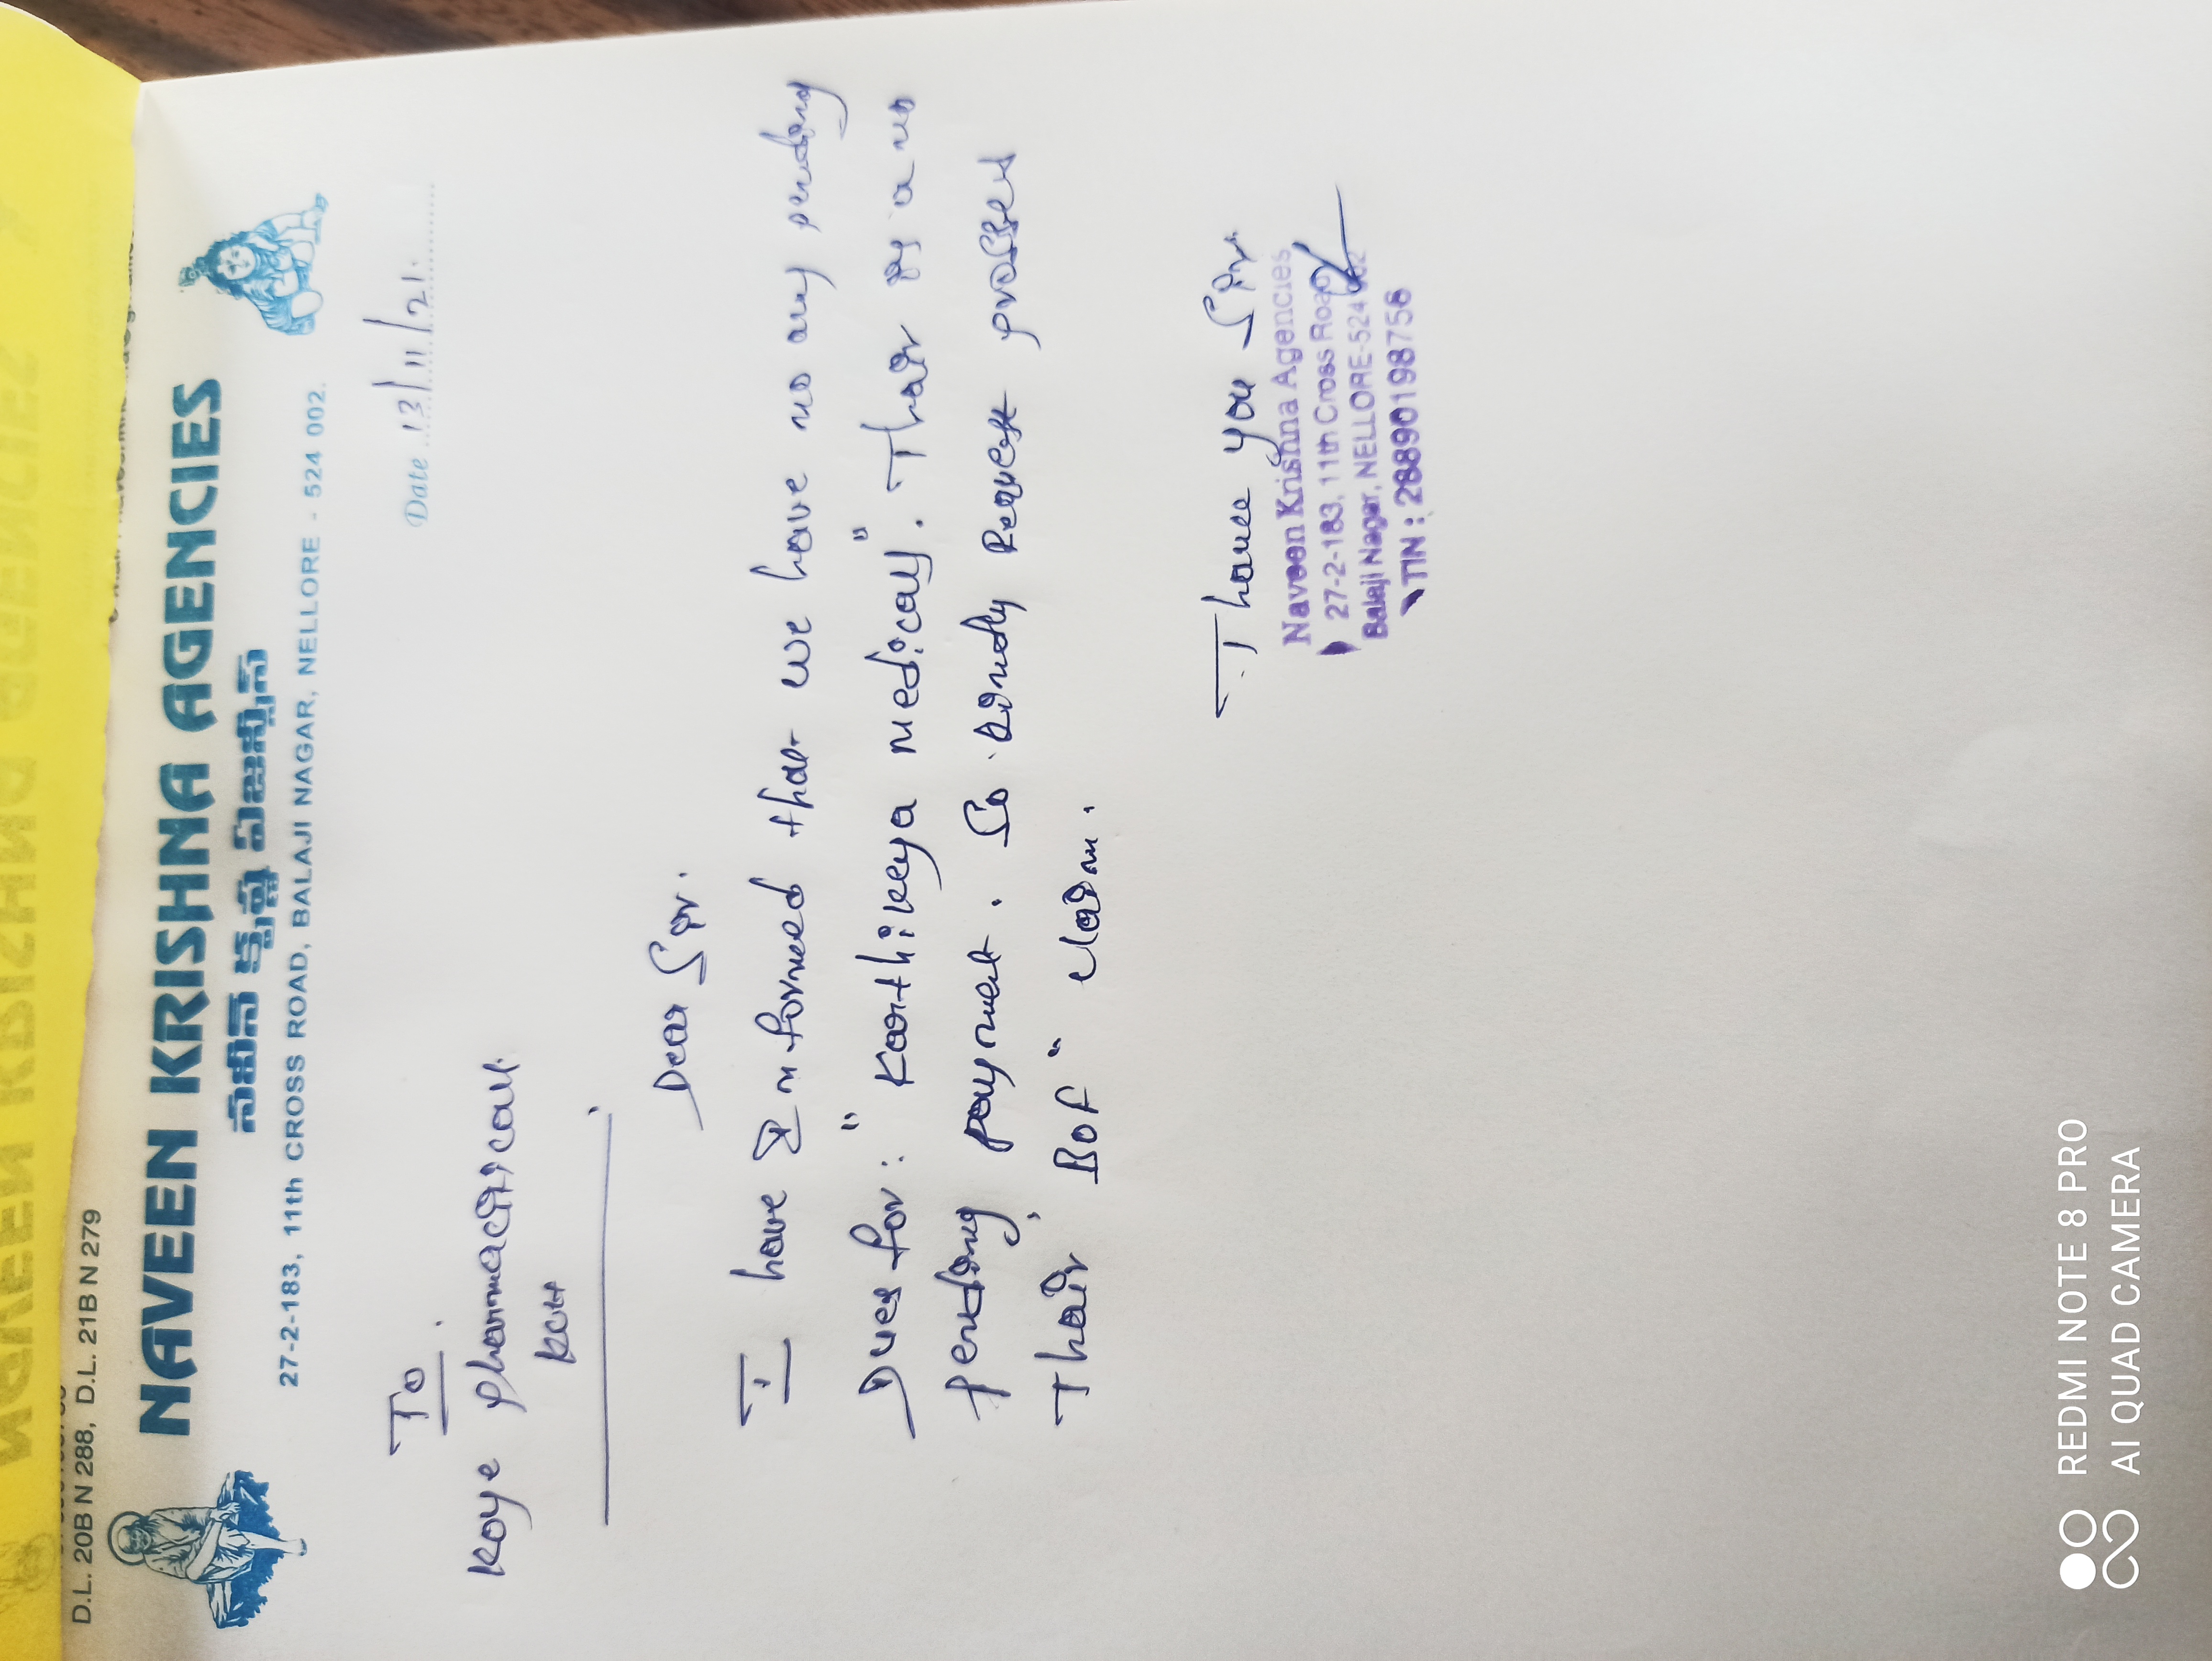 D.L. 20B N 288, D.L. 21B N 279
NAVEEN KRISHNA AGENCIES
నవీన్ క్రిష్ణ ఏజన్సీస్
27-2-183, 11th CROSS ROAD, BALAJI NAGAR, NELLORE - 524 002.
Date 13/11/21.
To.
Koye pharmaceiticals.
Dear Sir.
I have Informed that we have no any pending
Dues for: "Karthikeya medicals". Thair is a no
pending payment. So kindly Request prosses
Thair BOF" claim.
Thanks you Sir.
Naveen Krishna Agencies
27-2-183, 11th Cross Road
Balaji Nagar, NELLORE-524 002
TIN : 28890198756
REDMI NOTE 8 PRO
AI QUAD CAMERA